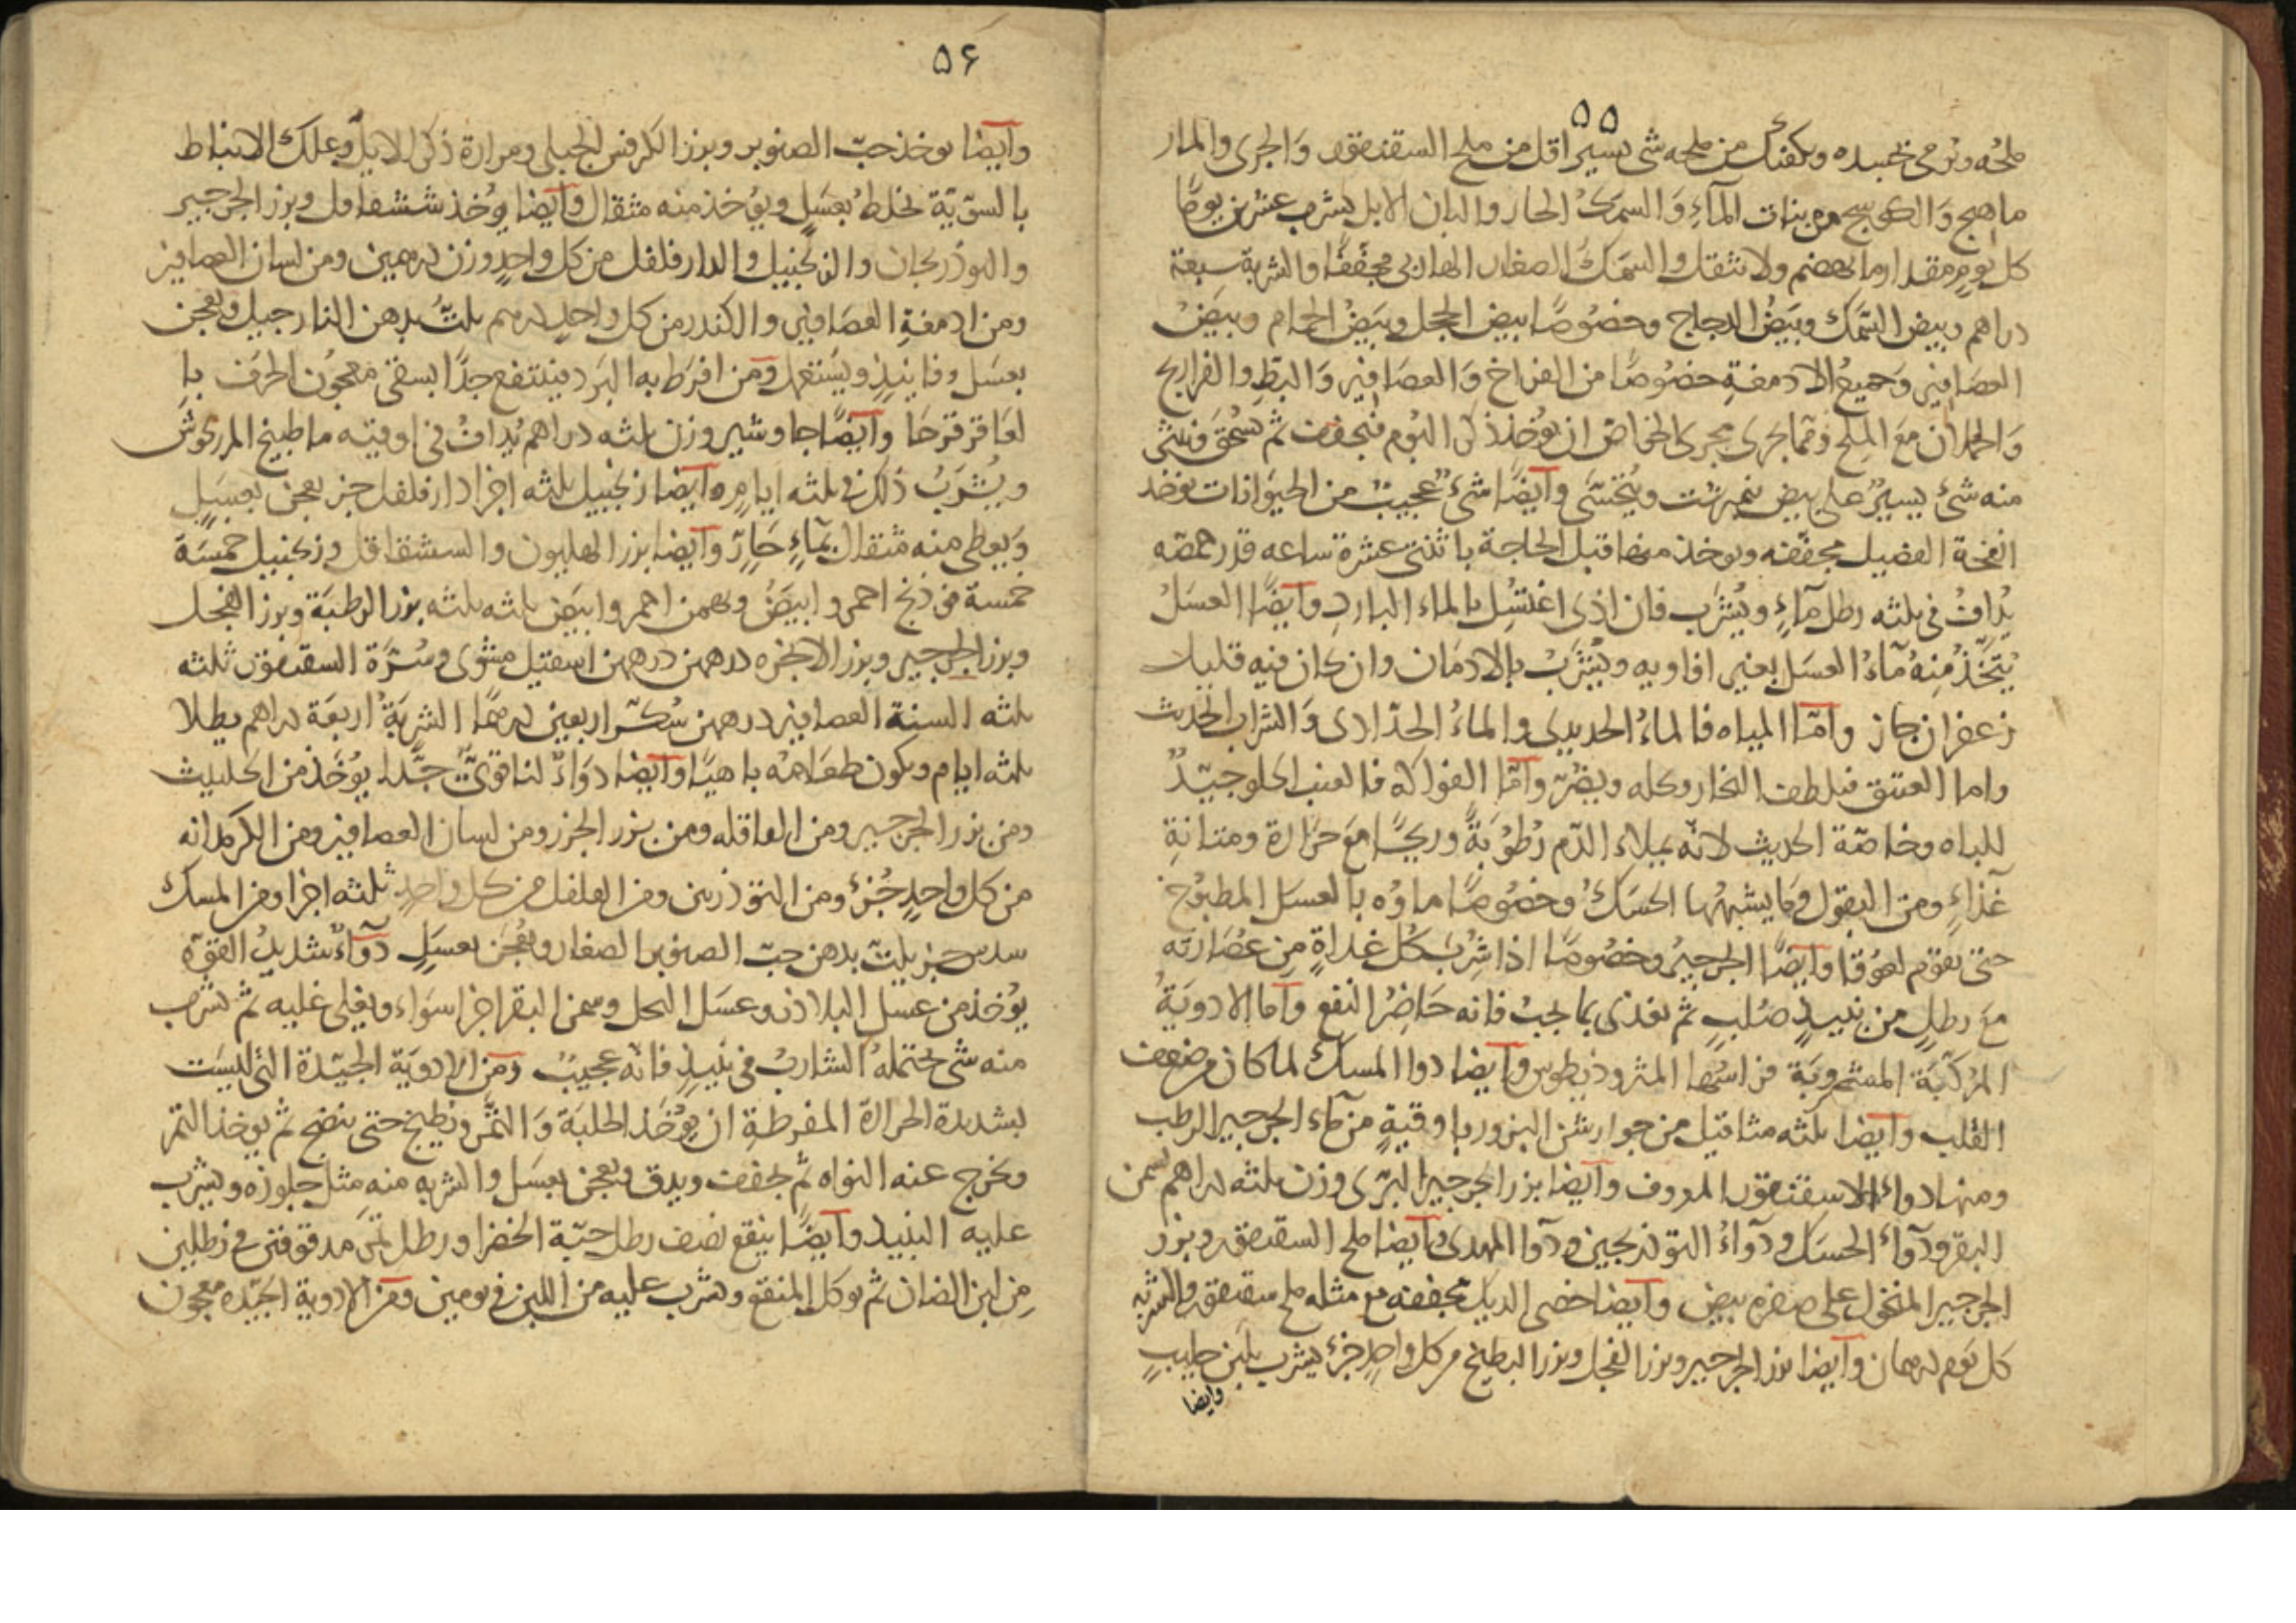 ٥٥
ملحه ويرمى بجسده ويكفيك من ملحه شى يسير اقل من ملح السقنقور والجرى والمار
ماهيج والكوسج من بنات المآء والسمك الحار والبان الابل يشرب عشرين يومًا
كل يوم مقدار ما يهضم ولا يثقل والسمك الصغار الهازبى مجففًا والشربة سبعة
دراهم وبيض السمك وبيض الدجاج وخصوصًا بيض الحجل وبيض الحمام وبيض
العصافير وجميع الادمغة خصوصًا من الفراخ والعصافير والبط والفراريج
والحملان مع الملح ومما يجرى مجرى الخاص ان يوخذ ذكر الثور فيجفف ثم يسحق فينثر
منه شئ يسير على بيض نيمبرشت ويتحسى وآيضًا شئ عجيب من الحيوانات يوخذ
انفحة الفصيل مجففه ويوخذ منها قبل الحاجة باثنتى عشرة ساعه قدر حمصه
يُداف فى ثلثه رطل مآء ويشرب فان اذى اغتسل بالماء البارد وآيضًا العسل
يتخذ منه مآء العسل بغير افاويه ويشرب بالادمان وان كان فيه قليلا
زعفران جاز وامّا المياه فالماء الحديدى والماء الحدّادى والشراب الحديث
واما العتيق فيلطف البخار ويحلله ويضر وآمّا الفواكه فالعنب الحلو جيّدٌ
للباه وخاصّة الحديث لانّه يملاء الدّم رطوبةً وريحًا مع حرارة ومتانة
غذاء ومن البقول وما يشبهها الحسك وخصوصًا ماؤه بالعسل المطبوخ
حتى يقوم لعوقا وآيضًا الجرجير وخصوصًا اذا شرب كل غداة من عصارته
مع رطل من نبيذ صلب ثم يغذى بما يجب فانه حاضر النفع وآما الادوية
المركّبة المشروبة فراسها المثروذيطوس وآيضا دوا المسك لما كان من ضعف
القلب وآيضا ثلثه مثاقيل من جوارشن البزور باوقية من مآء الجرجير الرطب
ومنها دواء الاسقنقور المعروف وآيضا بزر الجرجير البرّى وزن ثلثه دراهم بسمن
البقر ودوآء الحسك ودوآء التوذريجين ودوآ المهدى وآيضا ملح السقنقور وبزر
الجرجير المنخول على صفره بيض وآيضا خصى الديك مجففه مع مثله ملح سقنقور والشربه
كل يوم درهمان وآيضا بزر الجرجير وبزر الفجل وبزر البطيخ من كل واحد جزء يشرب بلبن حليب
وايضا
٥٦
وآيضا يوخذ حبّ الصنوبر وبزر الكرفس الجبلى ومرارة ذكر الايل وعلك الانباط
بالسويّة يخلط بعسل ويؤخذ منه مثقال وآيضا يوخذ ششقاقل وبزر الجرجير
والبوذريجان والزنجبيل والدارفلفل من كل واحد وزن درهمين ومن لسان العصافير
ومن ادمغة العصافير والكندر من كل واحد درهم يلتّ بدهن النارجيل ويعجن
بعسل وفانيذ ويستعمل ومن افرط به البرد فينتفع جدًا بسقى معجون الحرف با
لعاقرقرحا وآيضًا جاوشير وزن ثلثه دراهم يُداف فى اوقيته ما طبيخ المرزنجوش
ويشرب ذلك فى ثلثه ايام وآيضا زنجبيل ثلثه اجزا دارفلفل جز يعجن بعسل
ويعطى منه مثقال بمآء حارّ وآيضا بزر الهليون والسشقاقل وزنجبيل خمسة
خمسة فرنج احمر وابيض وبهمن احمر وابيض ثلثه ثلثه بزر الرطبة وبزر الفجل
وبزر الجرجير وبزر الانجره درهمين درهمين اسقيل مشوى وسرّة السقنقور ثلثه
ثلثه السنة العصافير درهمين سكّر اربعين درهمًا الشربة اربعة دراهم يطلا
ثلثه ايام ويكون طعامه باهيًا وآيضا دوآء لنا قوىّ جدًّا يؤخذ من الحلتيث
ومن بزر الجرجير ومن القاقله ومن بزر الجزر ومن لسان العصافير ومن الكرمدانه
من كل واحد جزء ومن التوذرين ومن الفلفل من كل واحد ثلثه اجزا ومن المسك
سدس جز يلتّ بدهن حبّ الصنوبر الصغار ويعجن بعسل دوآء شديد القوّه
يؤخذ من عسل البلاذر وعسل النحل وسمن البقر اجزا سواء ويغلى غليه ثم يشرب
منه شى يحتمله الشارب فى نبيذ فانّه عجيب ومن الادوية الجيّدة التى ليست
بشديدة الحرارة المفرطة ان يؤخذ الحلبة والتمر ويطبخ حتى ينضج ثم يوخذ التمر
ويخرج عنه النواه ثم يجفف ويدق ويعجن بعسل والشربه منه مثل جلوزه ويشرب
عليه النبيذ وآيضًا ينقع نصف رطل حبّة الخضرا ورطل تمر مدقوقتين فى رطلين
من لبن الضان ثم يوكل المنقع ويشرب عليه من اللبن فى يومين ومن الادوية الجيّده معجون